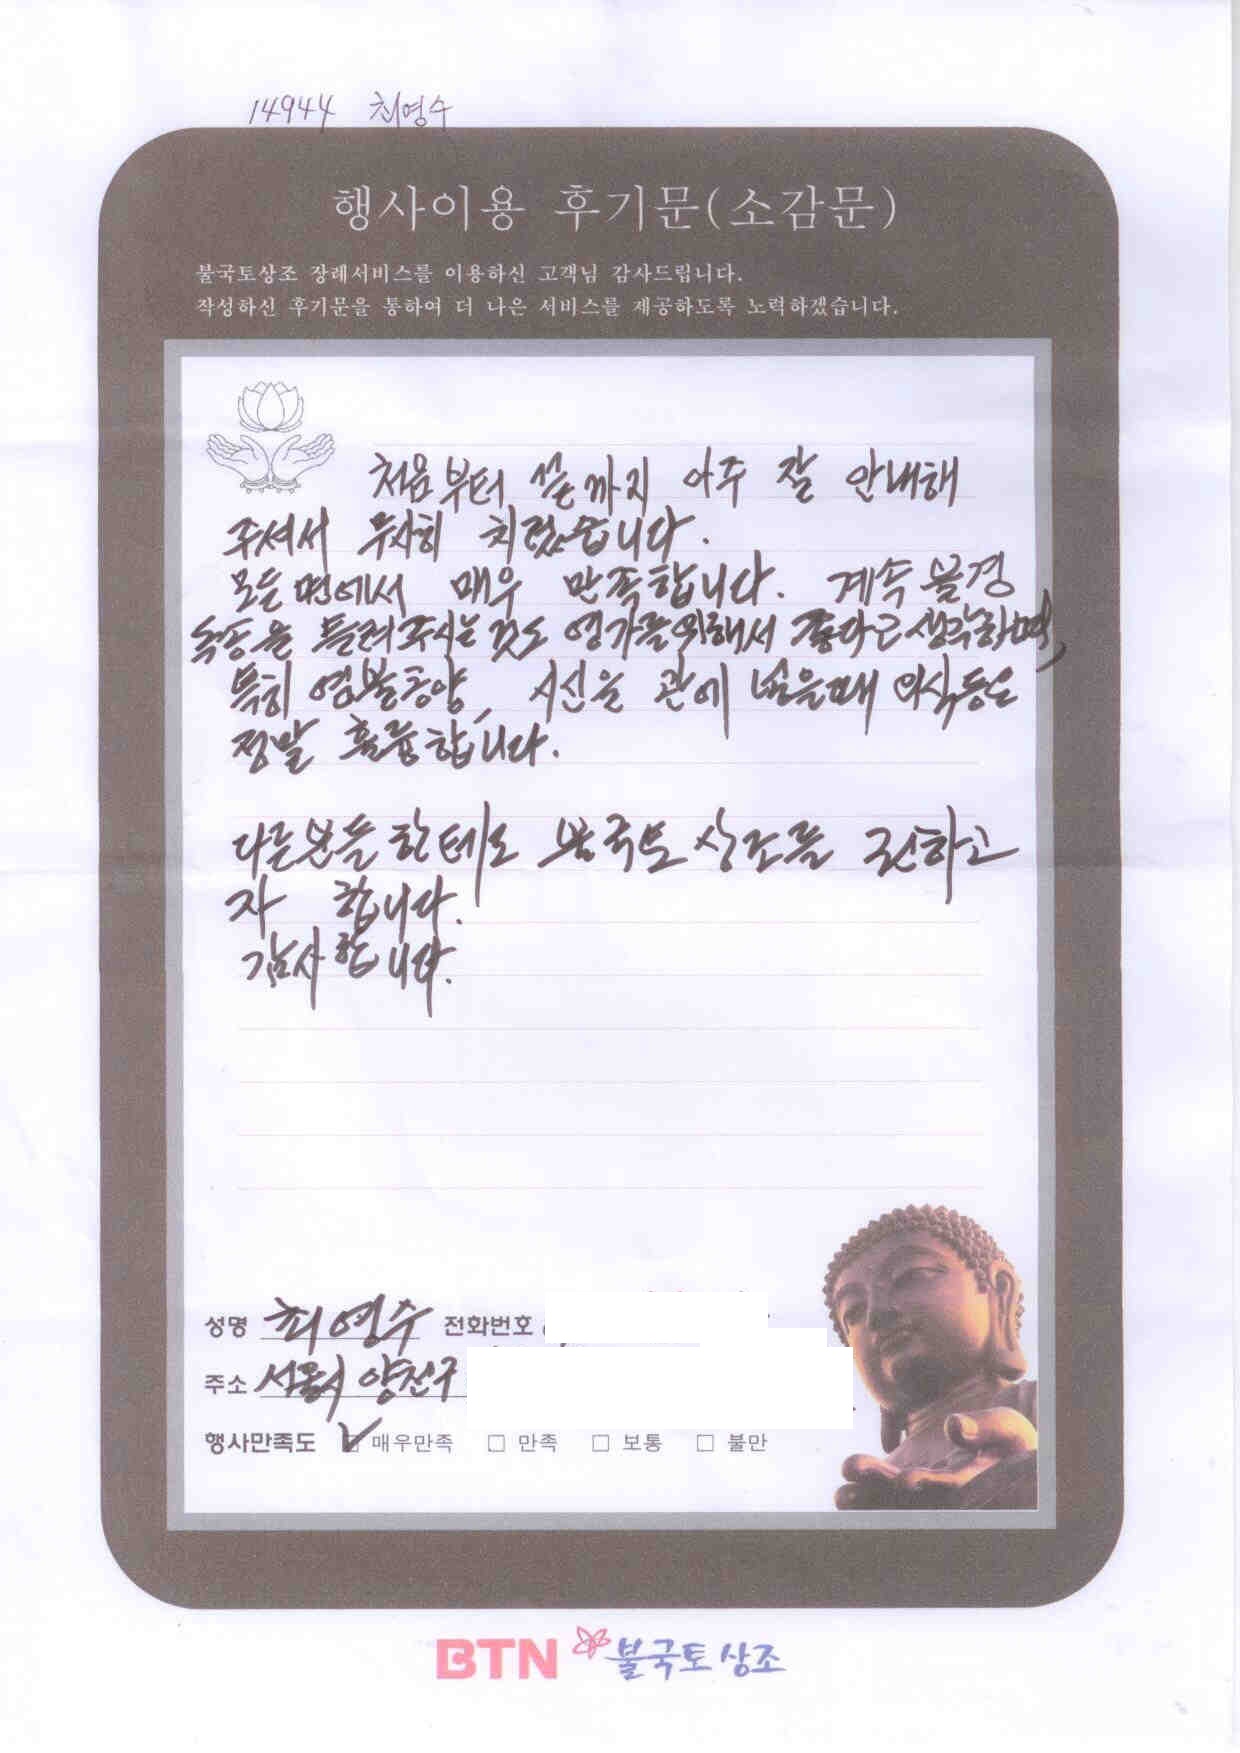 14944 최영수
행사이용 후기문(소감문)
불국토상조 장례서비스를 이용하신 고객님 감사드립니다.
작성하신 후기문을 통하여 더 나은 서비스를 제공하도록 노력하겠습니다.
처음부터 끝까지 아주 잘 안내해
주셔서 무사히 치렀습니다.
모든면에서 매우 만족합니다. 계속 불경
독송을 들려주시는 것도 영가를위해서 좋다고 생각하며,
특히 염불공양, 시신을 관에 넣을때 의식등은
정말 훌륭합니다.
다른분들한테도 불국토 상조를 권하고
자 합니다.
감사합니다.
성명 최영수 전화번호
주소 서울시
행사만족도 ☑ 매우만족 □ 만족 □ 보통 □ 불만
BTN 불국토상조